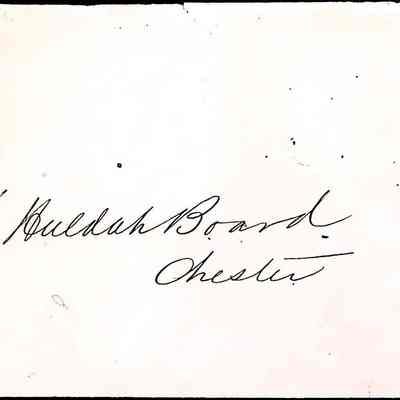 Huldah Board.
Chester